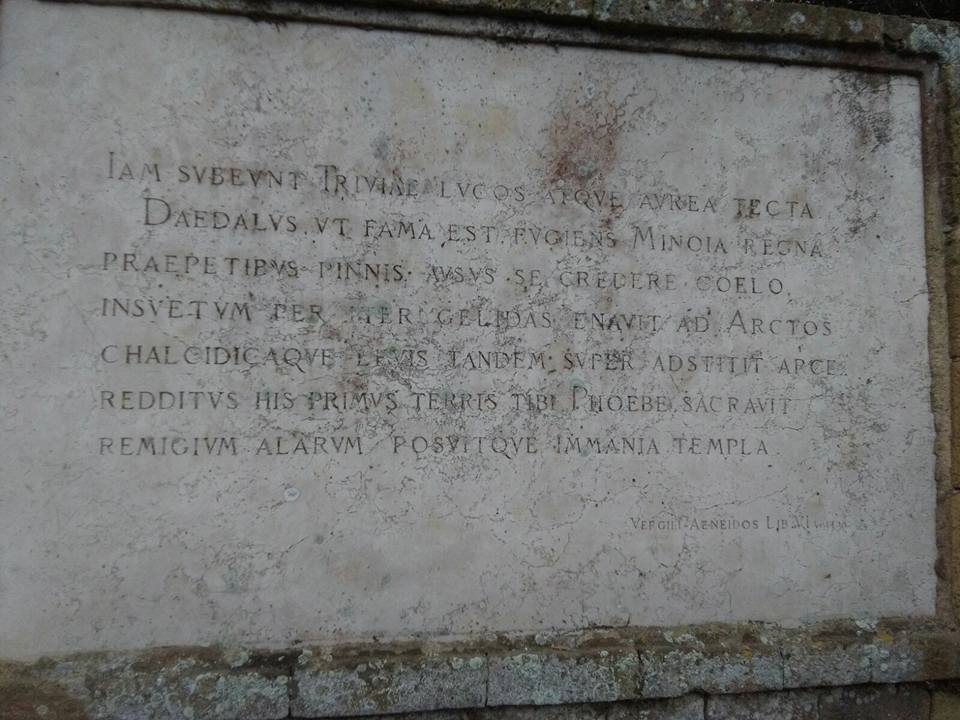 IAM SVBEVNT TRIVIAE LVCOS ATQVE AVREA TECTA
DAEDALVS, VT FAMA EST, FVGIENS MINOIA REGNA
PRAEPETIBVS PINNIS AVSVS SE CREDERE COELO,
INSVETVM PER ITER GELIDAS ENAVIT AD ARCTOS
CHALCIDICAQVE LEVIS TANDEM SVPER ADSTITIT ARCE.
REDDITVS HIS PRIMVS TERRIS TIBI PHOEBE, SACRAVIT
REMIGIVM ALARVM POSVITQVE IMMANIA TEMPLA.
VERGILI AENEIDOS LIB. VI